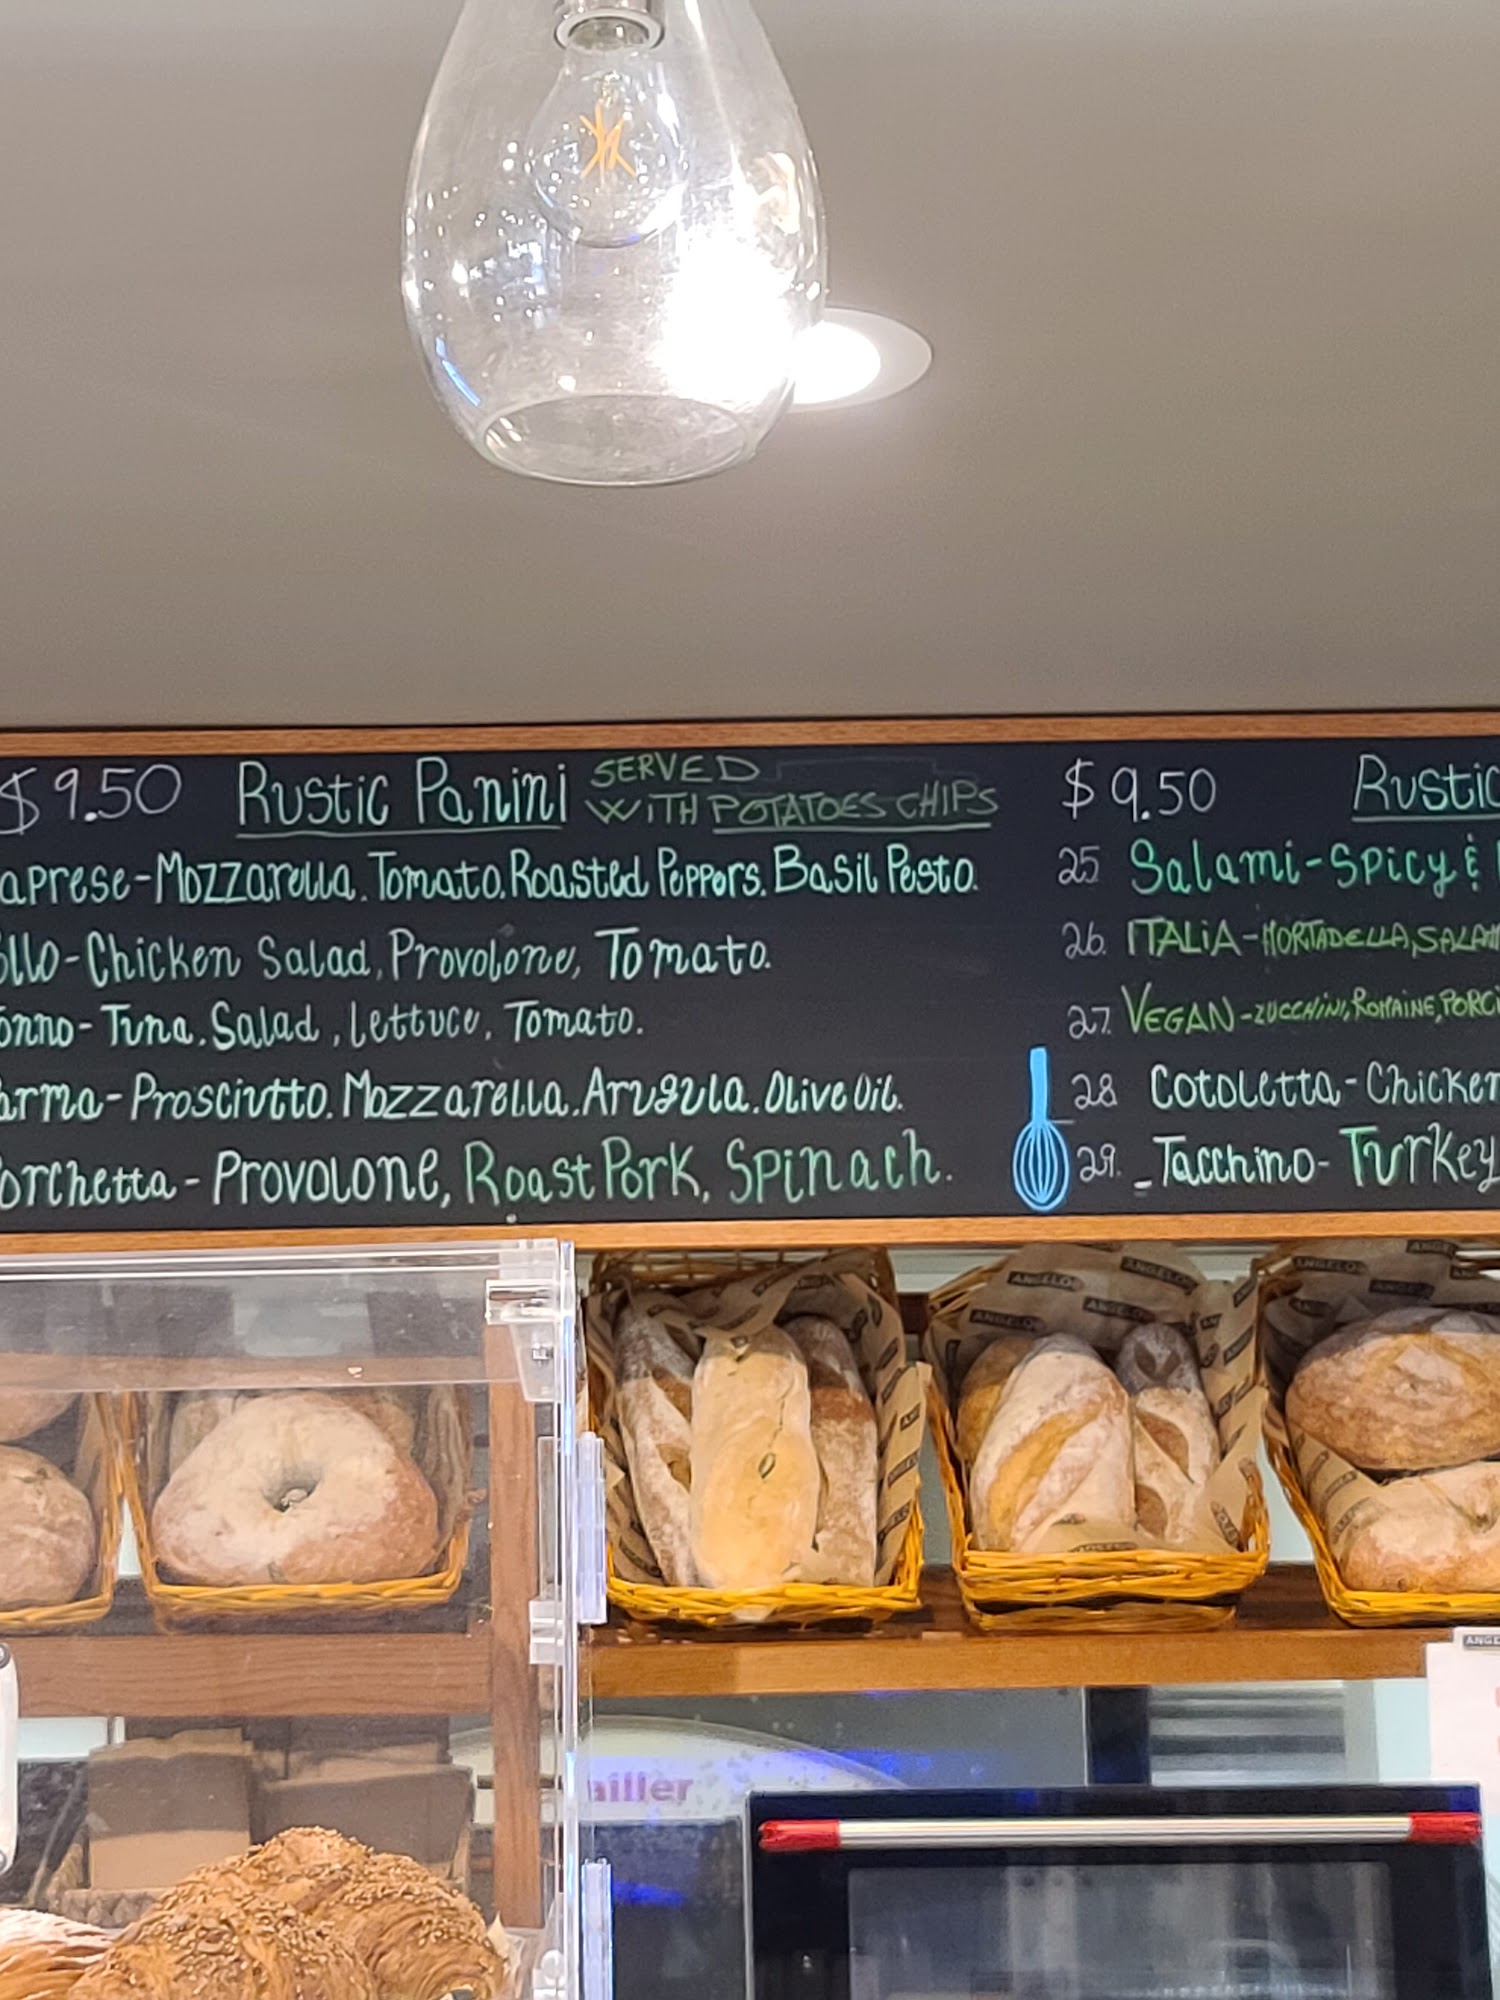 $9.50 Rustic Panini SERVED
WITH POTATOES CHIPS
aprese-Mozzarella. Tomato. Roasted Peppers. Basil Pesto.
ollo-Chicken Salad, Provolone, Tomato.
onno-Tuna. Salad, lettuce, Tomato.
arma-Prosciutto. Mozzarella. Arugula. Olive Oil.
orchetta-PROVOLONE, Roast Pork, Spinach.
$9.50 Rustic
25 Salami-Spicy &
26. ITALIA-MORTADELLA, SALAMI
27. VEGAN-ZUCCHINI, ROMAINE, PORCI
28 Cotoletta-Chicken
29. Tacchino-Turkey
ANGELO
ANGELO
ANGELO
ANGELO
ANGELO
ailler
ANGE